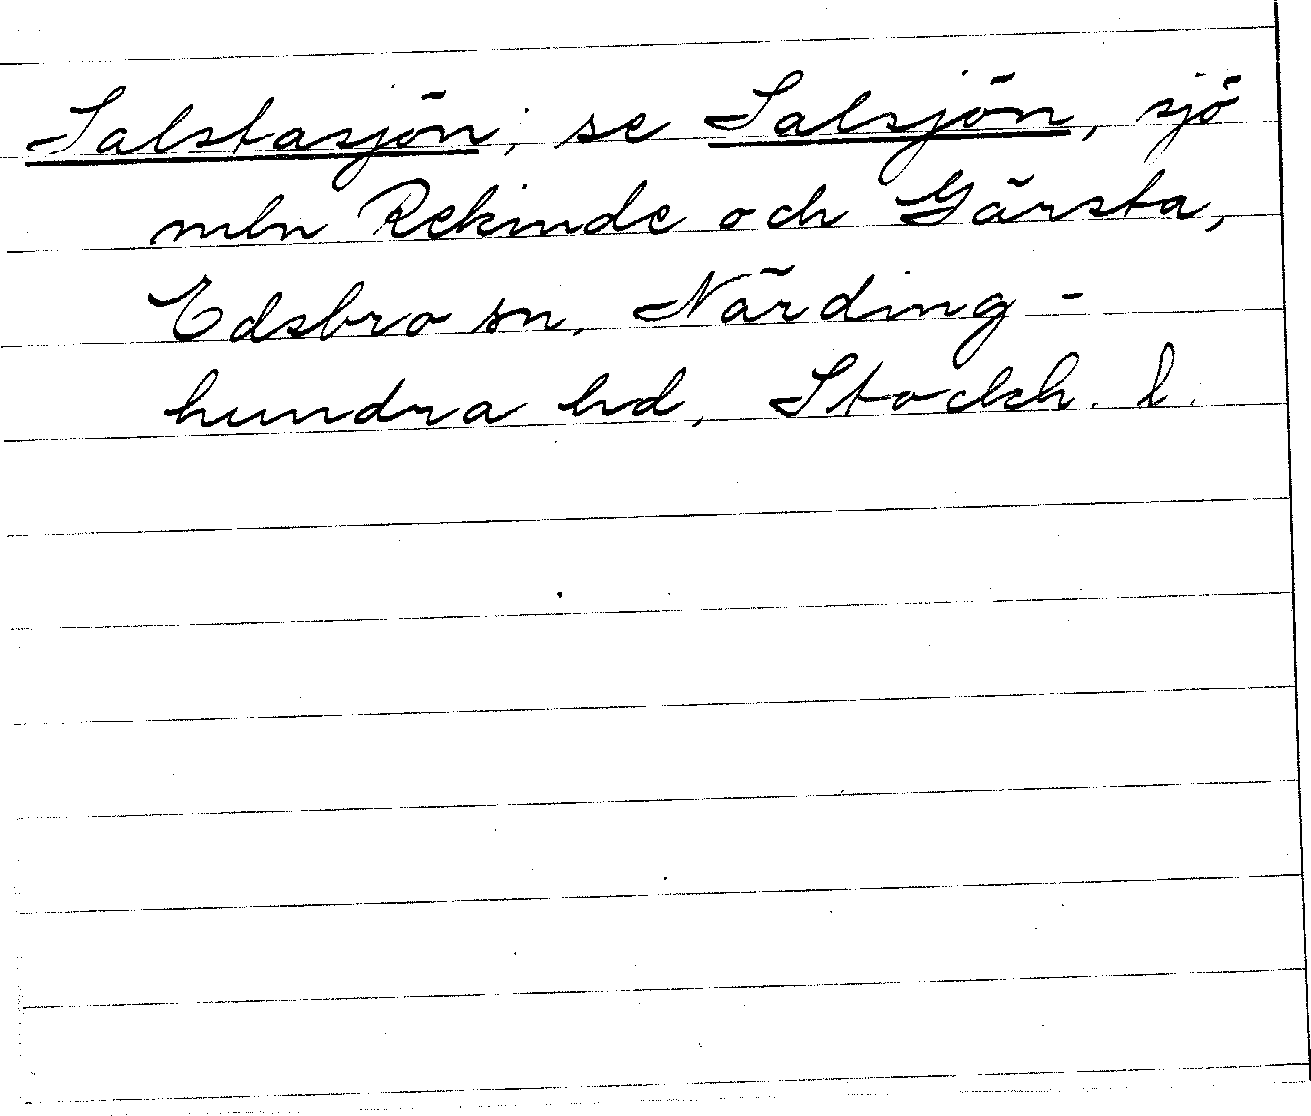 Salstasjön, se Salsjön, sjö
mln Rekinde och Gärsta,
Edsbro sn, Närding-
hundra hd, Stockh. l.